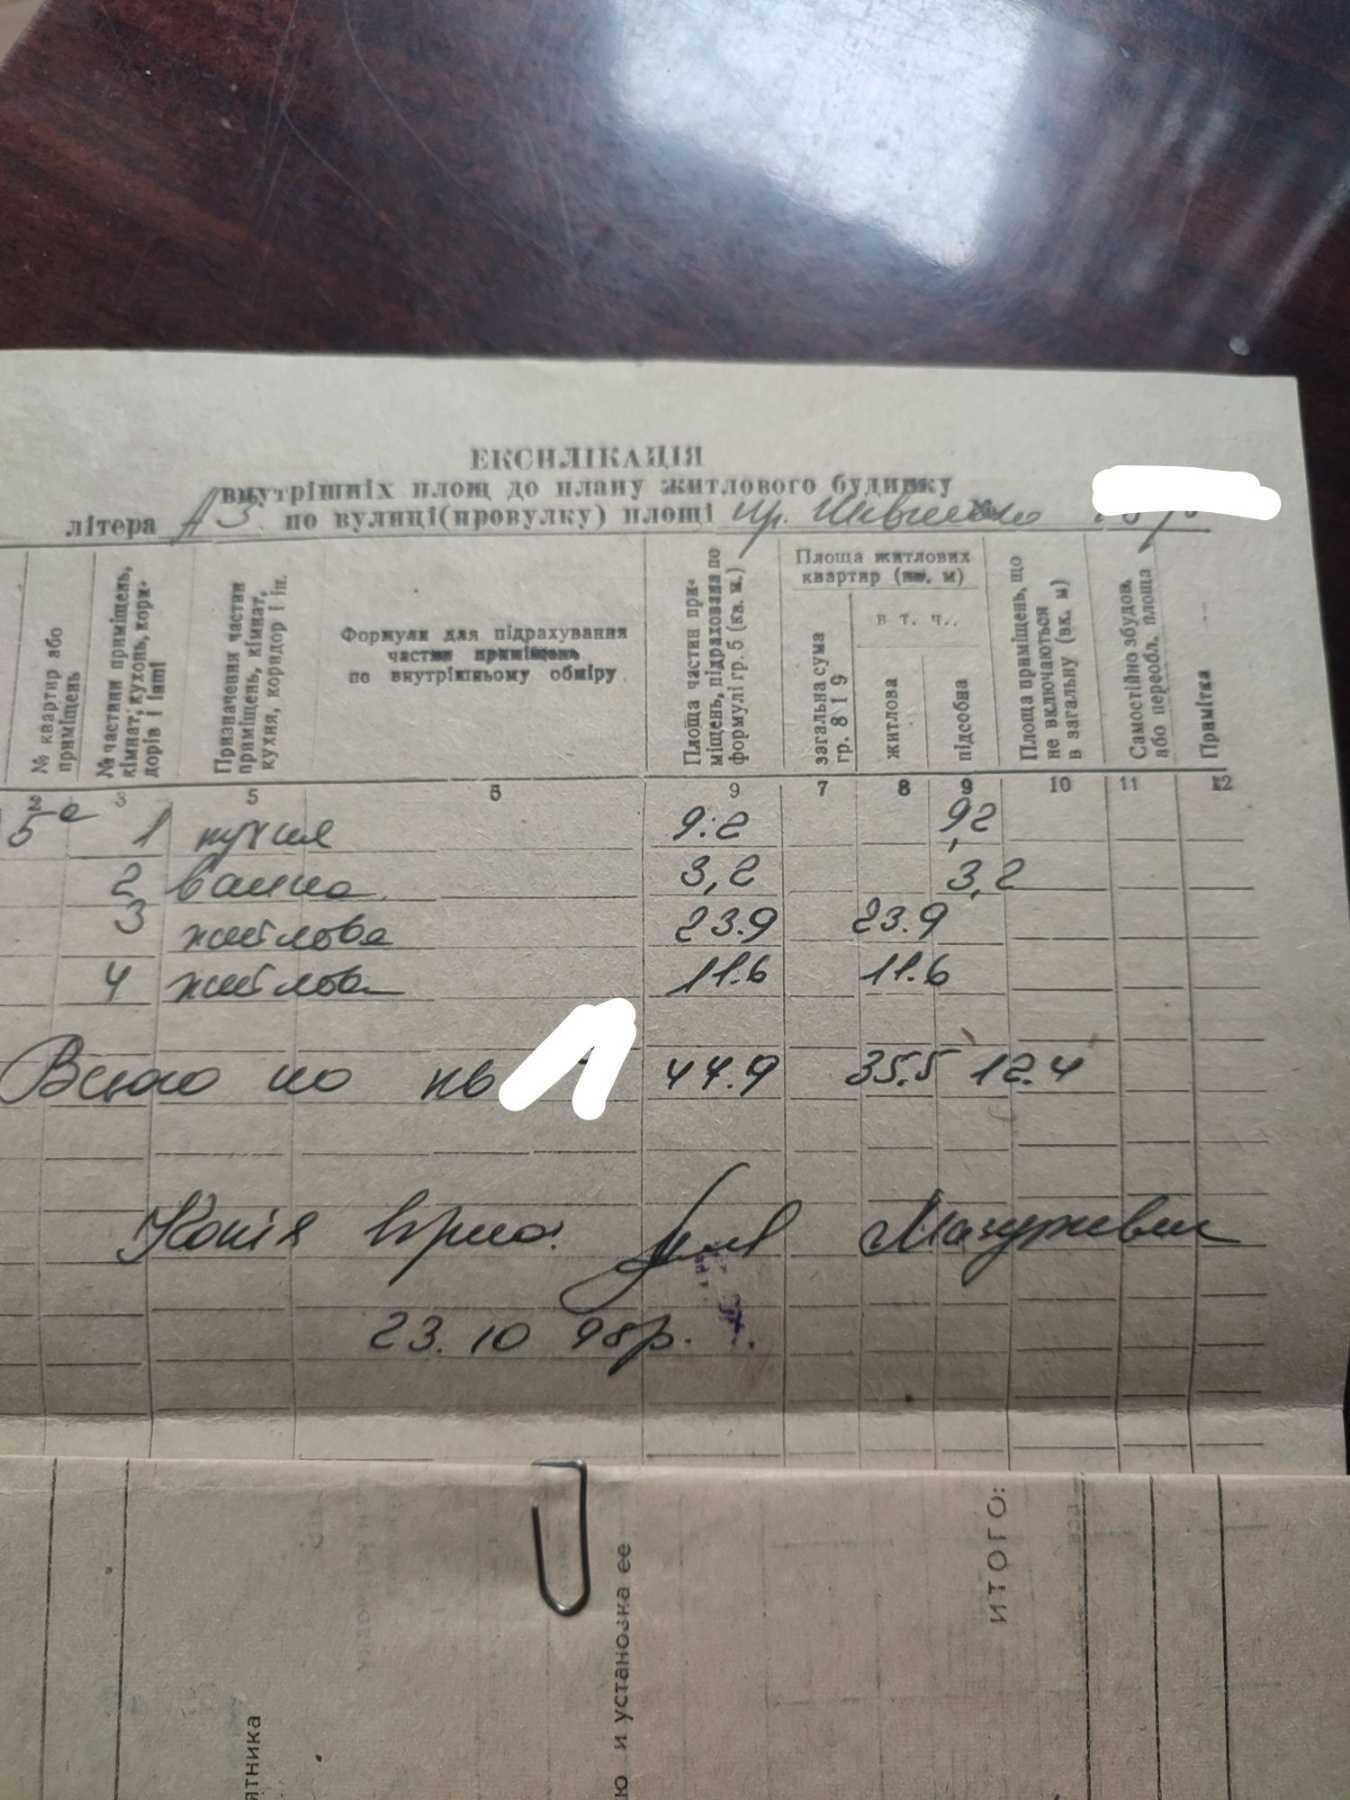 ЕКСПЛІКАЦІЯ
внутрішніх площ до плану житлового будинку
літера А3 по вулиці(провулку) площі пр. Шевченко
№ квартир або приміщень
№ частини приміщень, кімнат, кухонь, коридорів і інші
Призначення частин приміщень, кімнат, кухня, коридор і ін.
Формули для підрахування частин приміщень по внутрішньому обміру
Площа частин приміщень, підрахована по формулі гр. 5 (кв. м.)
Площа житлових квартир (кв. м)
в т. ч.
загальна сума гр. 8 і 9
житлова
підсобна
Площа приміщень, що не включаються в загальну (вк. м)
Самостійно збудов. або переобл. площа
Примітка
2 3 5 5 9 7 8 9 10 11 12
5 1 кухня 9.2 9,2
2 ванна 3,2 3,2
3 житлова 23.9 23.9
4 житлова 11.6 11.6
Всього по кв 47.9 35.5 12.4
Копія вірна:
23.10 98р.
ИТОГО:
ю и установка ее
ятника